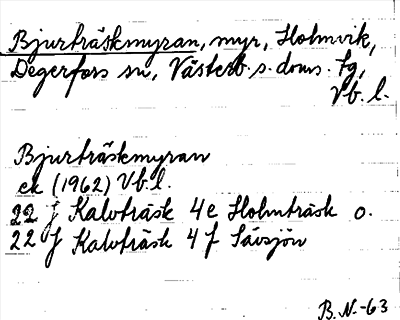 Bjurträskmyran, myr, Holmvik,
Degerfors sn, Västerb. s. doms. tg,
Vb. l.
Bjurträskmyran
ek (1962) Vb. l.
22 J Kalvträsk 4e Holmträsk o.
22 J Kalvträsk 4f Sävsjön
B. N. -63